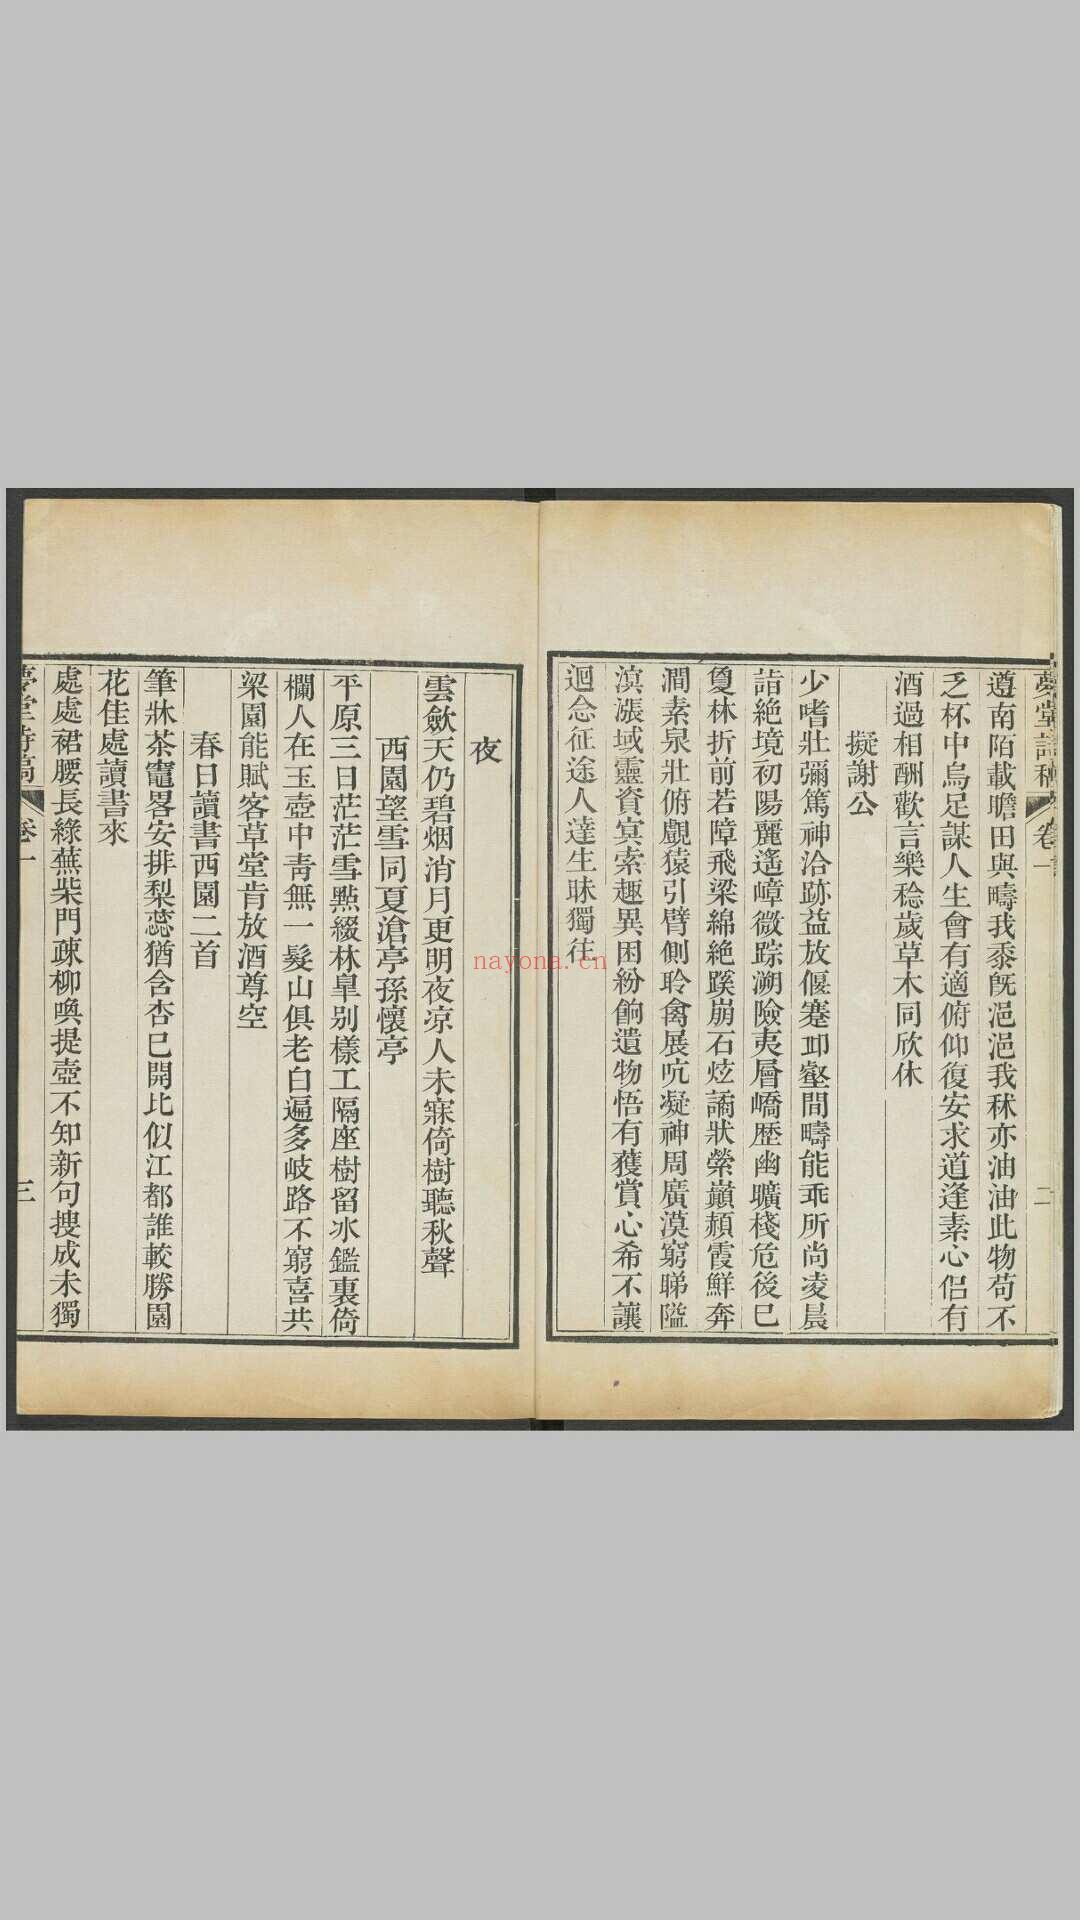 遵南陌載瞻田與疇我黍既浥浥我秫亦油油此物苟不
乏杯中烏足謀人生會有適俯仰復安求道逢素心侶有
酒過相酬歡言樂稔歲草木同欣休
擬謝公
少嗜壯彌篤神洽跡益放偃蹇丘壑間疇能乖所尚凌晨
詰絶境初陽麗遙嶂微踪溯險夷層嶠歷幽曠棧危後已
夐林折前若障飛梁綿絶蹊崩石炫譎狀縈巔頳霞鮮奔
澗素泉壯俯覷猿引臂側聆禽展吭凝神周廣漠窮睇隘
滇漲域靈資冥索趣異困紛餉遺物悟有獲賞心希不讓
迴念征途人達生昧獨往
夢堂詩稿
卷一
二
夜
雲歛天仍碧烟消月更明夜凉人未寐倚樹聽秋聲
西園望雪同夏滄亭孫懷亭
平原三日茫茫雪㸃綴林臯别樣工隔座樹留冰鑑裏倚
欄人在玉壺中青無一髮山俱老白遍多岐路不窮喜共
梁園能賦客草堂肯放酒尊空
春日讀書西園二首
筆牀茶竈畧安排梨蕊猶含杏已開比似江都誰較勝園
花佳處讀書來
處處裙腰長綠蕪柴門疎柳喚提壺不知新句搜成未獨
夢堂詩稿
卷一
三
nayona.cn